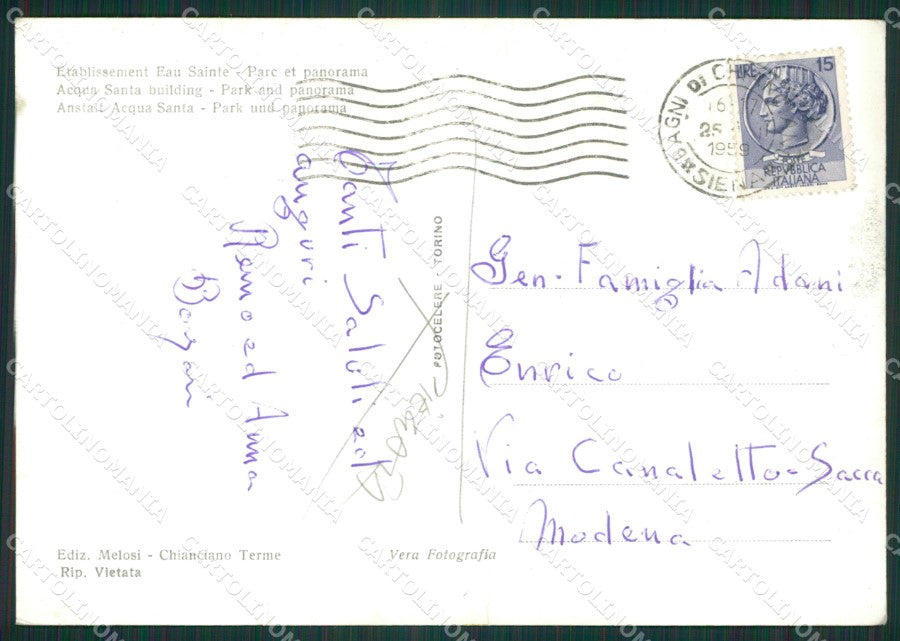 Etablissement Eau Sainte - Parc et panorama
Acqua Santa building - Park and panorama
Anstalt Acqua Santa - Park und panorama
BAGNI DI CHI
25
1959
SIENA
15
LIRE
REPVBBLICA
ITALIANA
Tanti Saluti ed
auguri
Remo ed Anna
FOTOCELERE - TORINO
Gen. Famiglia Adani
Enrico
Via Canaletto - Sacca
Modena
Ediz. Melosi - Chianciano Terme
Rip. Vietata
Vera Fotografia
CARTOLINOMANIA